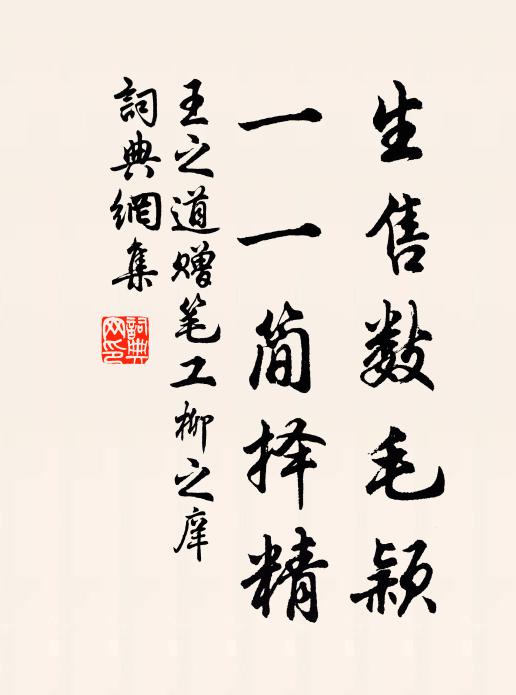 生售数毛颖
一一简择精
王之道赠笔工柳之庠
詞典網集
詞典网印